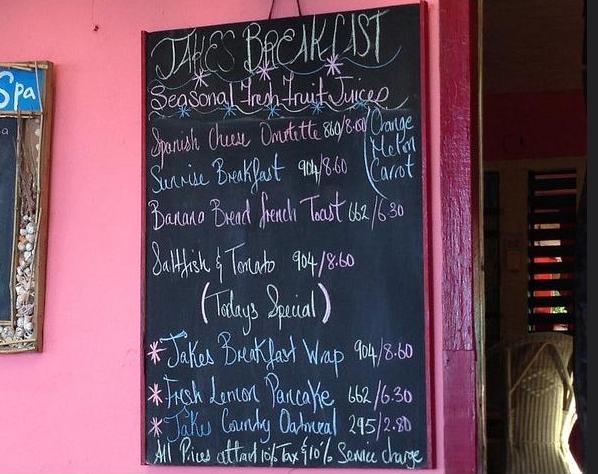 Spa
JAKES BREAKFAST
Seasonal Fresh Fruit Juices
Spanish Cheese Omelette 860/8.60
Orange
Melon
Carrot
Sunrise Breakfast 904/8.60
Banana Bread French Toast 662/6.30
Saltfish & Tomato 904/8.60
(Todays Special)
* Jakes Breakfast Wrap 904/8.60
* Fresh Lemon Pancake 662/6.30
* Jakes Country Oatmeal 295/2.80
All Prices attract 10% Tax & 10% Service charge